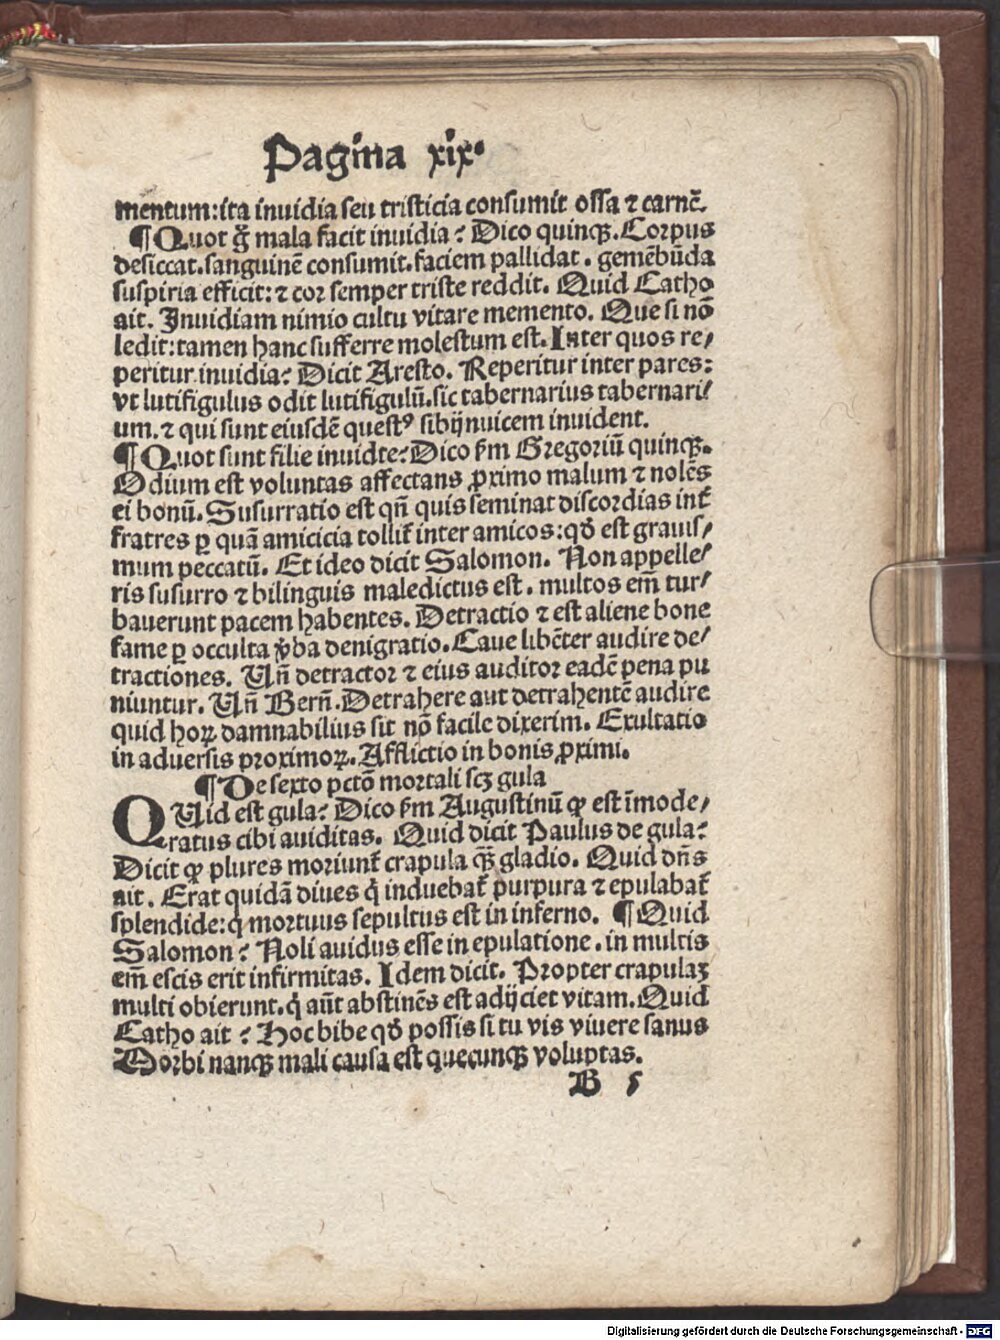 Pagina xix.
mentum: ita inuidia seu tristicia consumit ossa ⁊ carnē.
¶ Quot g̃ mala facit inuidia? Dico quinqꝫ. Corpus
desiccat. sanguinē consumit. faciem pallidat. gemēbūda
suspiria efficit: ⁊ cor semper triste reddit. Quid Catho
ait. Inuidiam nimio cultu vitare memento. Que si nō
ledit: tamen hanc sufferre molestum est. Inter quos re/
peritur inuidia? Dicit Aresto. Reperitur inter pares:
vt lutifigulus odit lutifigulū. sic tabernarius tabernari/
um. ⁊ qui sunt eiusdē questꝰ sibijnuicem inuident.
¶ Quot sunt filie inuidie? Dico ẜm Gregoriū quinqꝫ.
Odium est voluntas affectans ꝓximo malum ⁊ nolēs
ei bonū. Susurratio est qn̄ quis seminat discordias int̄
fratres ꝑ quā amicicia tollit̄ inter amicos: qd̛ est grauis/
mum peccatū. Et ideo dicit Salomon. Non appelle/
ris susurro ⁊ bilinguis maledictus est. multos em̄ tur/
bauerunt pacem habentes. Detractio ⁊ est aliene bone
fame ꝑ occulta v̄ba denigratio. Caue libēter audire de/
tractiones. Vn̄ detractor ⁊ eius auditor eadē pena pu
niuntur. Vn̄ Bern̄. Detrahere aut detrahentē audire
quid hoꝝ damnabilius sit nō facile dixerim. Exultatio
in aduersis proximoꝝ. Afflictio in bonis ꝓximi.
¶ De sexto pctō mortali scꝫ gula
QUid est gula? Dico ẜm Augustinū ꝙ est īmode/
ratus cibi auiditas. Quid dicit Paulus de gula?
Dicit ꝙ plures moriunt̄ crapula qꝫ̄ gladio. Quid dn̄s
ait. Erat quidā diues q̇ induebat̄ purpura ⁊ epulabat̄
splendide: q̇ mortuus sepultus est in inferno. ¶ Quid
Salomon? Noli auidus esse in epulatione. in multis
em̄ escis erit infirmitas. Idem dicit. Propter crapulaꝫ
multi obierunt. q̇ aūt abstinēs est adijciet vitam. Quid
Catho ait? Hoc bibe qd̛ possis si tu vis viuere sanus
Morbi nanqꝫ mali causa est quecunqꝫ voluptas.
B 5
Digitalisierung gefördert durch die Deutsche Forschungsgemeinschaft - DFG